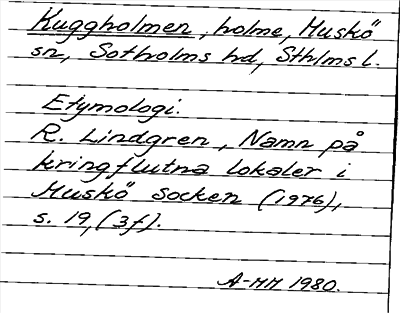 Kuggholmen, holme, Muskö
sn, Sotholms hd, Sthlms l.
Etymologi.
R. Lindgren, Namn på
kringflutna lokaler i
Muskö socken (1976),
s. 19, (3f).
A-MH 1980.